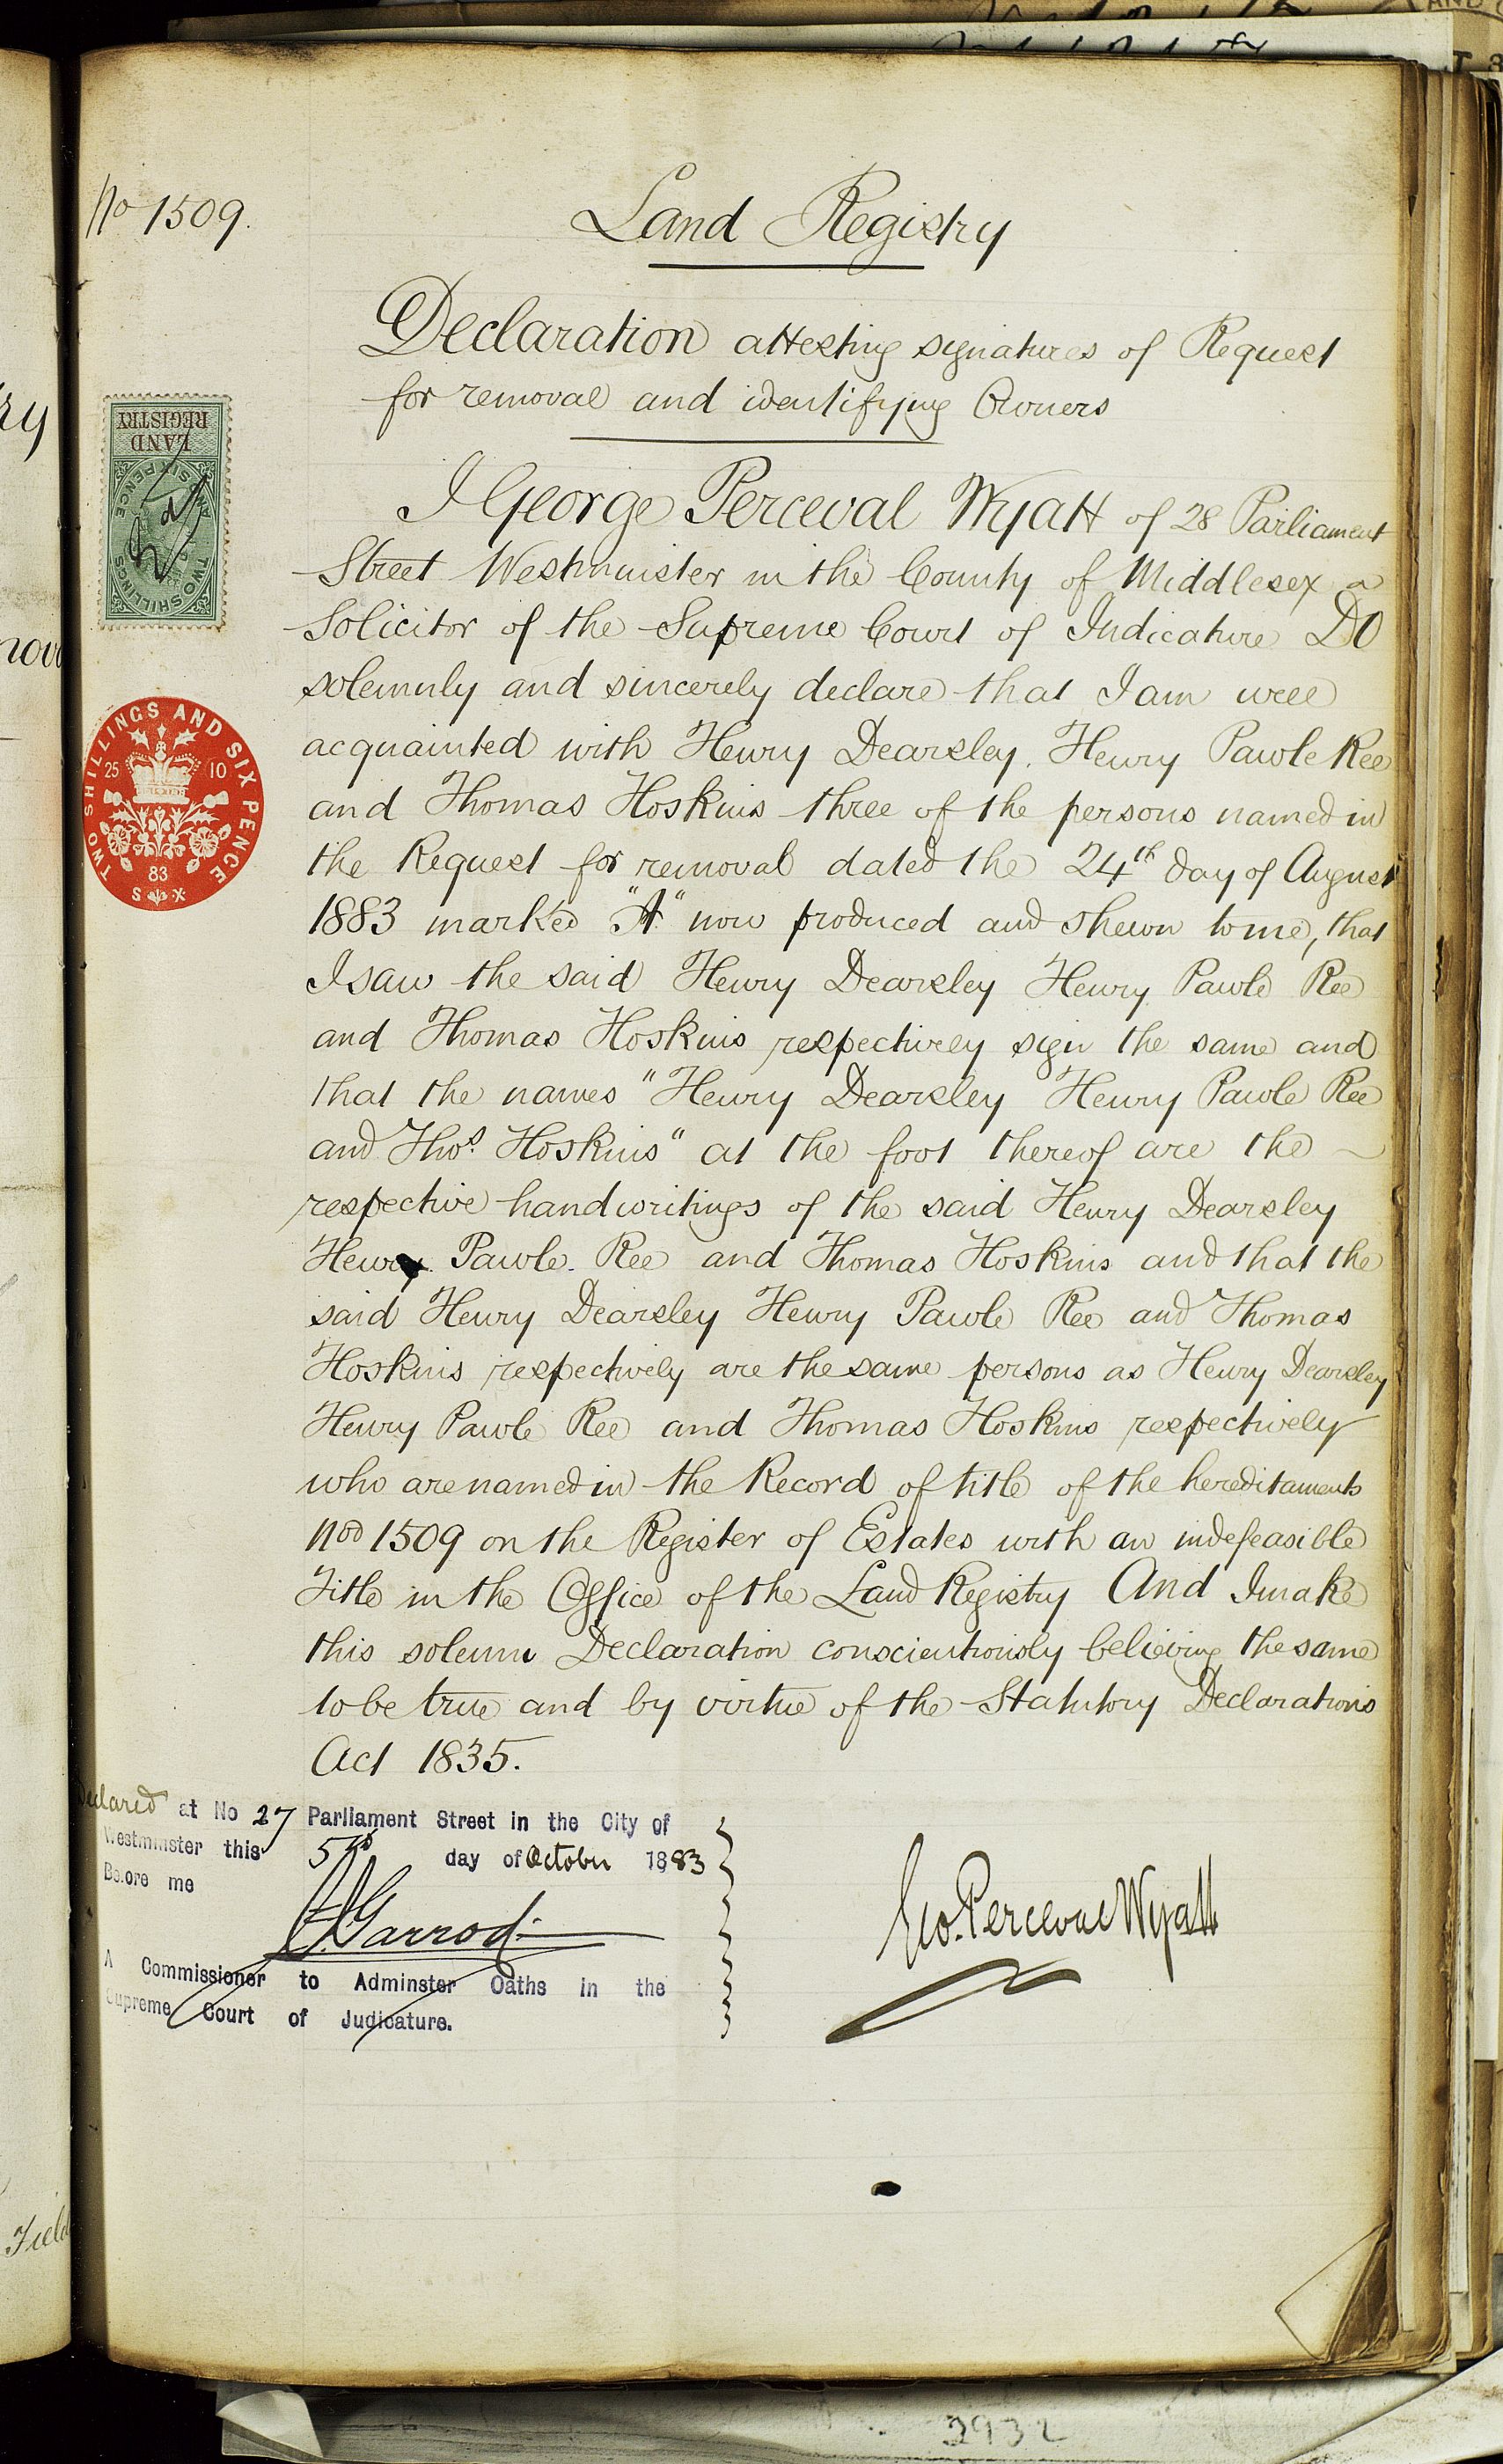 No 1509.
Land Registry
Declaration attesting signatures of Request
for removal and identifying Owners
I George Perceval Wyatt of 28 Parliament
Street Westminster in the County of Middlesex a
Solicitor of the Supreme Court of Judicature DO
solemnly and sincerely declare that I am well
acquainted with Henry Dearsley, Henry Pawle Ree
and Thomas Hoskins three of the persons named in
the Request for removal dated the 24th day of August
1883 marked "A" now produced and shewn to me, that
I saw the said Henry Dearsley Henry Pawle Ree
and Thomas Hoskins respectively sign the same and
that the names "Henry Dearsley Henry Pawle Ree
and Thos. Hoskins" at the foot thereof are the
respective handwritings of the said Henry Dearsley
Henry Pawle Ree and Thomas Hoskins and that the
said Henry Dearsley Henry Pawle Ree and Thomas
Hoskins respectively are the same persons as Henry Dearsley
Henry Pawle Ree and Thomas Hoskins respectively
who are named in the Record of title of the hereditaments
Nod 1509 on the Register of Estates with an indefeasible
Title in the Office of the Land Registry And I make
this solemn Declaration conscientiously believing the same
to be true and by virtue of the Statutory Declarations
Act 1835.
Declared at No 27 Parliament Street in the City of
Westminster this 5th day of October 1883
Before me
Garrod
A Commissioner to Adminster Oaths in the
Supreme Court of Judicature.
Geo. Perceval Wyatt
LAND
REGISTRY
TWO SHILLINGS AND SIX PENCE
TWO SHILLINGS AND SIX PENCE
25 10
83
S X
Field
2932